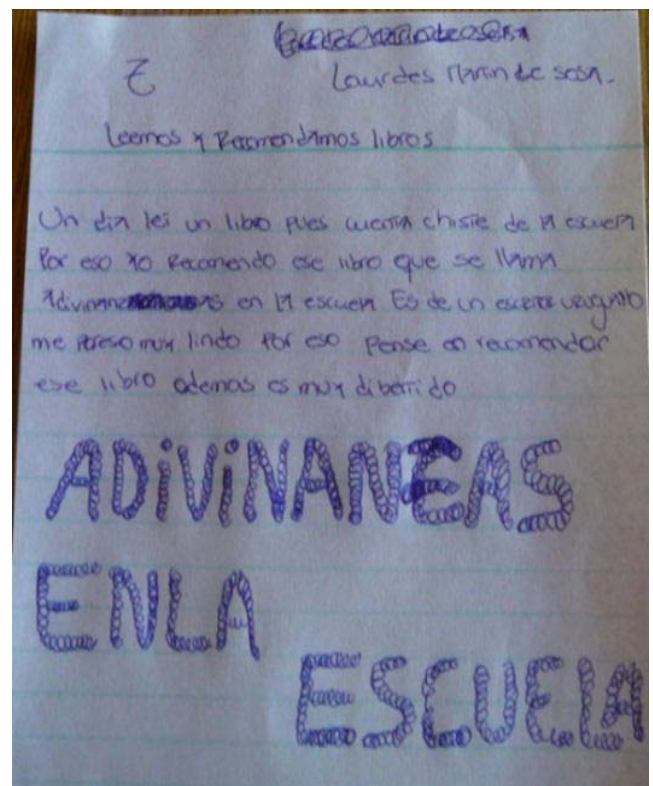 Lourdes Marin de sosa.
Leemos y Recomendamos libros
Un dia lei un libro pues cuenta chiste de la escuela
Por eso yo Recomendo ese libro que se llama
Adivinanzas en la escuela Es de un escritor uruguallo
me pareso muy lindo Por eso pense en recomendar
ese libro ademas es muy diberrido
ADiViNANZAS
ENLA
ESCUElA